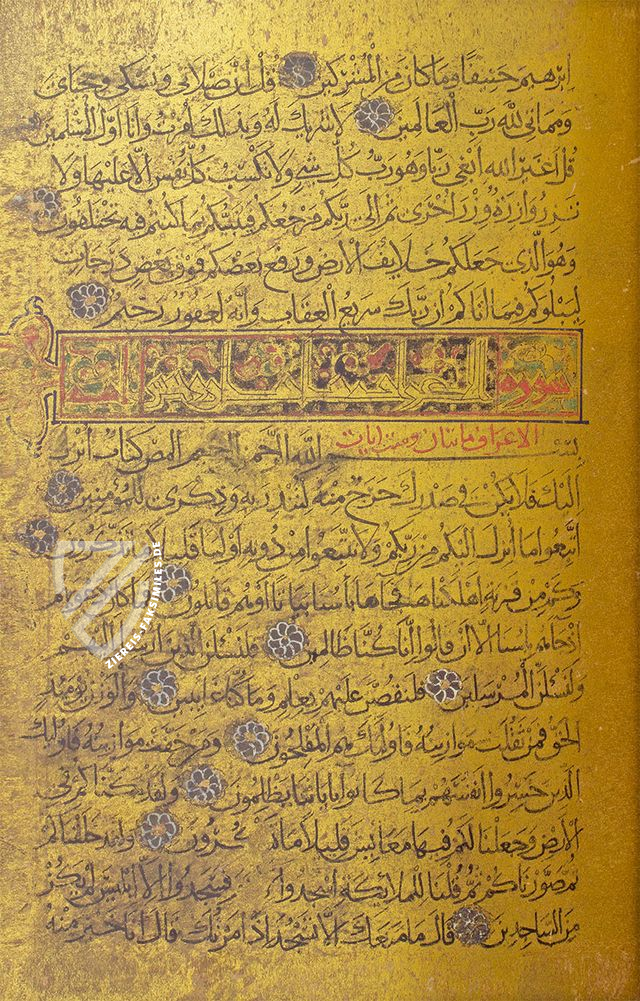 ابرهيم حنيفا وما كان من المشركين قل ان صلاتي ونسكي ومحياي
ومماتي لله رب العالمين لا شريك له وبذلك امرت وانا اول المسلمين
قل اغير الله ابغي ربا وهو رب كل شيء ولا تكسب كل نفس الا عليها ولا
تزر وازرة وزر اخرى ثم الى ربكم مرجعكم فينبئكم بما كنتم فيه تختلفون
وهو الذي جعلكم خلايف الارض ورفع بعضكم فوق بعض درجات
ليبلوكم فيما اتاكم ان ربك سريع العقاب وانه لغفور رحيم
سورة
الاعراف مايتان وست ايات
بسم الله الرحمن الرحيم المص كتاب انزل
اليك فلا يكن في صدرك حرج منه لتنذر به وذكرى للمؤمنين
اتبعوا ما انزل اليكم من ربكم ولا تتبعوا من دونه اوليا قليلا ما تذكرون
وكم من قرية اهلكناها فجاها باسنا بياتا او هم قايلون فما كان دعواهم
اذ جاهم باسنا الا ان قالوا انا كنا ظالمين فلنسئلن الذين ارسل اليهم
ولنسئلن المرسلين فلنقصن عليهم بعلم وما كنا غايبين والوزن يوميذ
الحق فمن ثقلت موازينه فاوليك هم المفلحون ومن خفت موازينه فاوليك
الذين خسروا انفسهم بما كانوا باياتنا يظلمون ولقد مكناكم في
الارض وجعلنا لكم فيها معايش قليلا ما تشكرون ولقد خلقناكم
ثم صورناكم ثم قلنا للملايكة اسجدوا فسجدوا الا ابليس لم يكن
من الساجدين قال ما منعك الا تسجد اذ امرتك قال انا خير منه
ZIEREIS-FAKSIMILES.DE